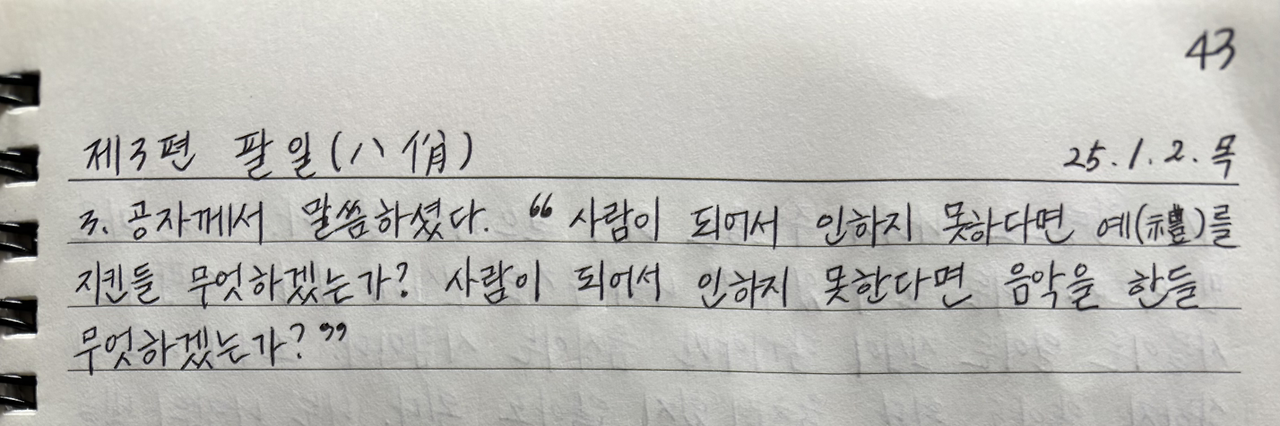 43
제3편 팔일(八佾) 25.1.2.목
3. 공자께서 말씀하셨다. “사람이 되어서 인하지 못하다면 예(禮)를
지킨들 무엇하겠는가? 사람이 되어서 인하지 못한다면 음악을 한들
무엇하겠는가?”